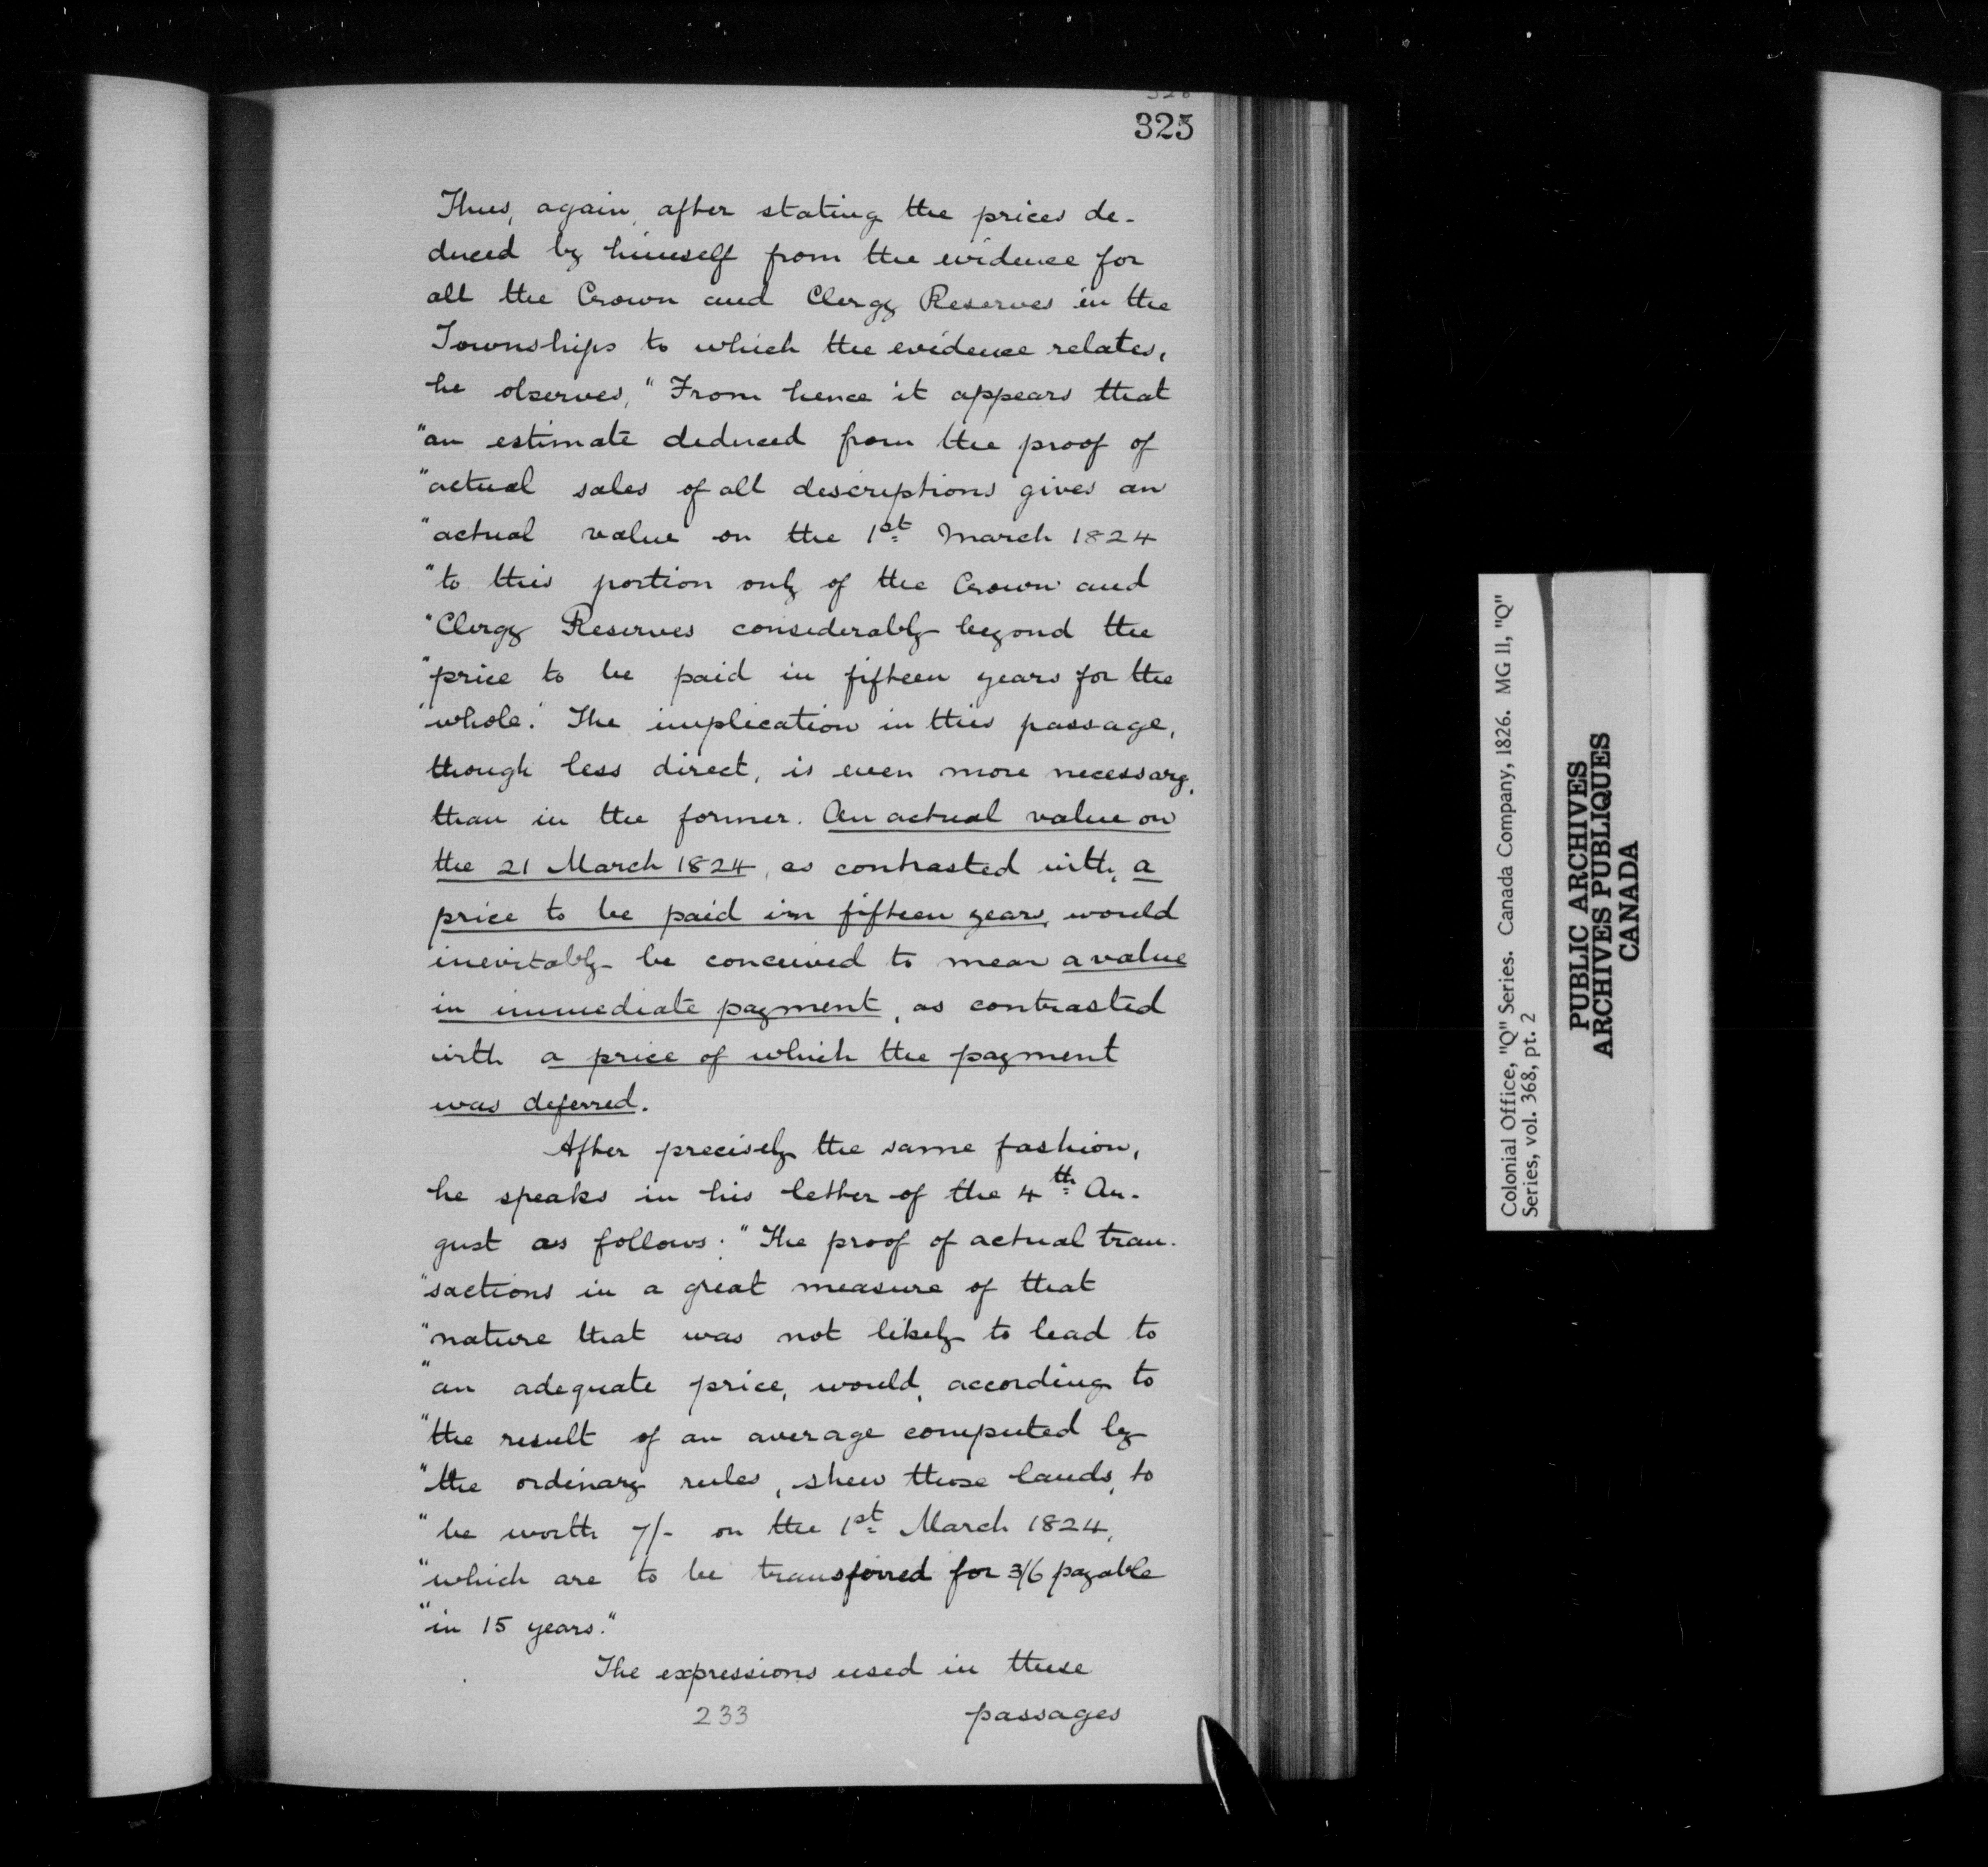 325
Thus, again, after stating the prices de-
duced by himself from the evidence for
all the Crown and Clergy Reserves in the
Townships to which the evidence relates,
he observes, "From hence it appears that
"an estimate deduced from the proof of
"actual sales of all descriptions gives an
"actual value on the 1st March 1824
"to this portion only of the Crown and
"Clergy Reserves considerably beyond the
"price to be paid in fifteen years for the
"whole." The implication in this passage,
though less direct, is even more necessary,
than in the former. An actual value on
the 21 March 1824, as contrasted with, a
price to be paid in fifteen years, would
inevitably be conceived to mean a value
in immediate payment, as contrasted
with a price of which the payment
was deferred.
After precisely the same fashion,
he speaks in his letter of the 4th Au-
gust as follows: "The proof of actual tran-
"sactions in a great measure of that
"nature that was not likely to lead to
"an adequate price, would, according to
"the result of an average computed by
"the ordinary rules, shew those lands, to
"be worth 7/- on the 1st March 1824,
"which are to be transferred for 3/6 payable
"in 15 years."
The expressions used in these
233 passages
Colonial Office, "Q" Series. Canada Company, 1826. MG 11, "Q"
Series, vol. 368, pt. 2
PUBLIC ARCHIVES
ARCHIVES PUBLIQUES
CANADA